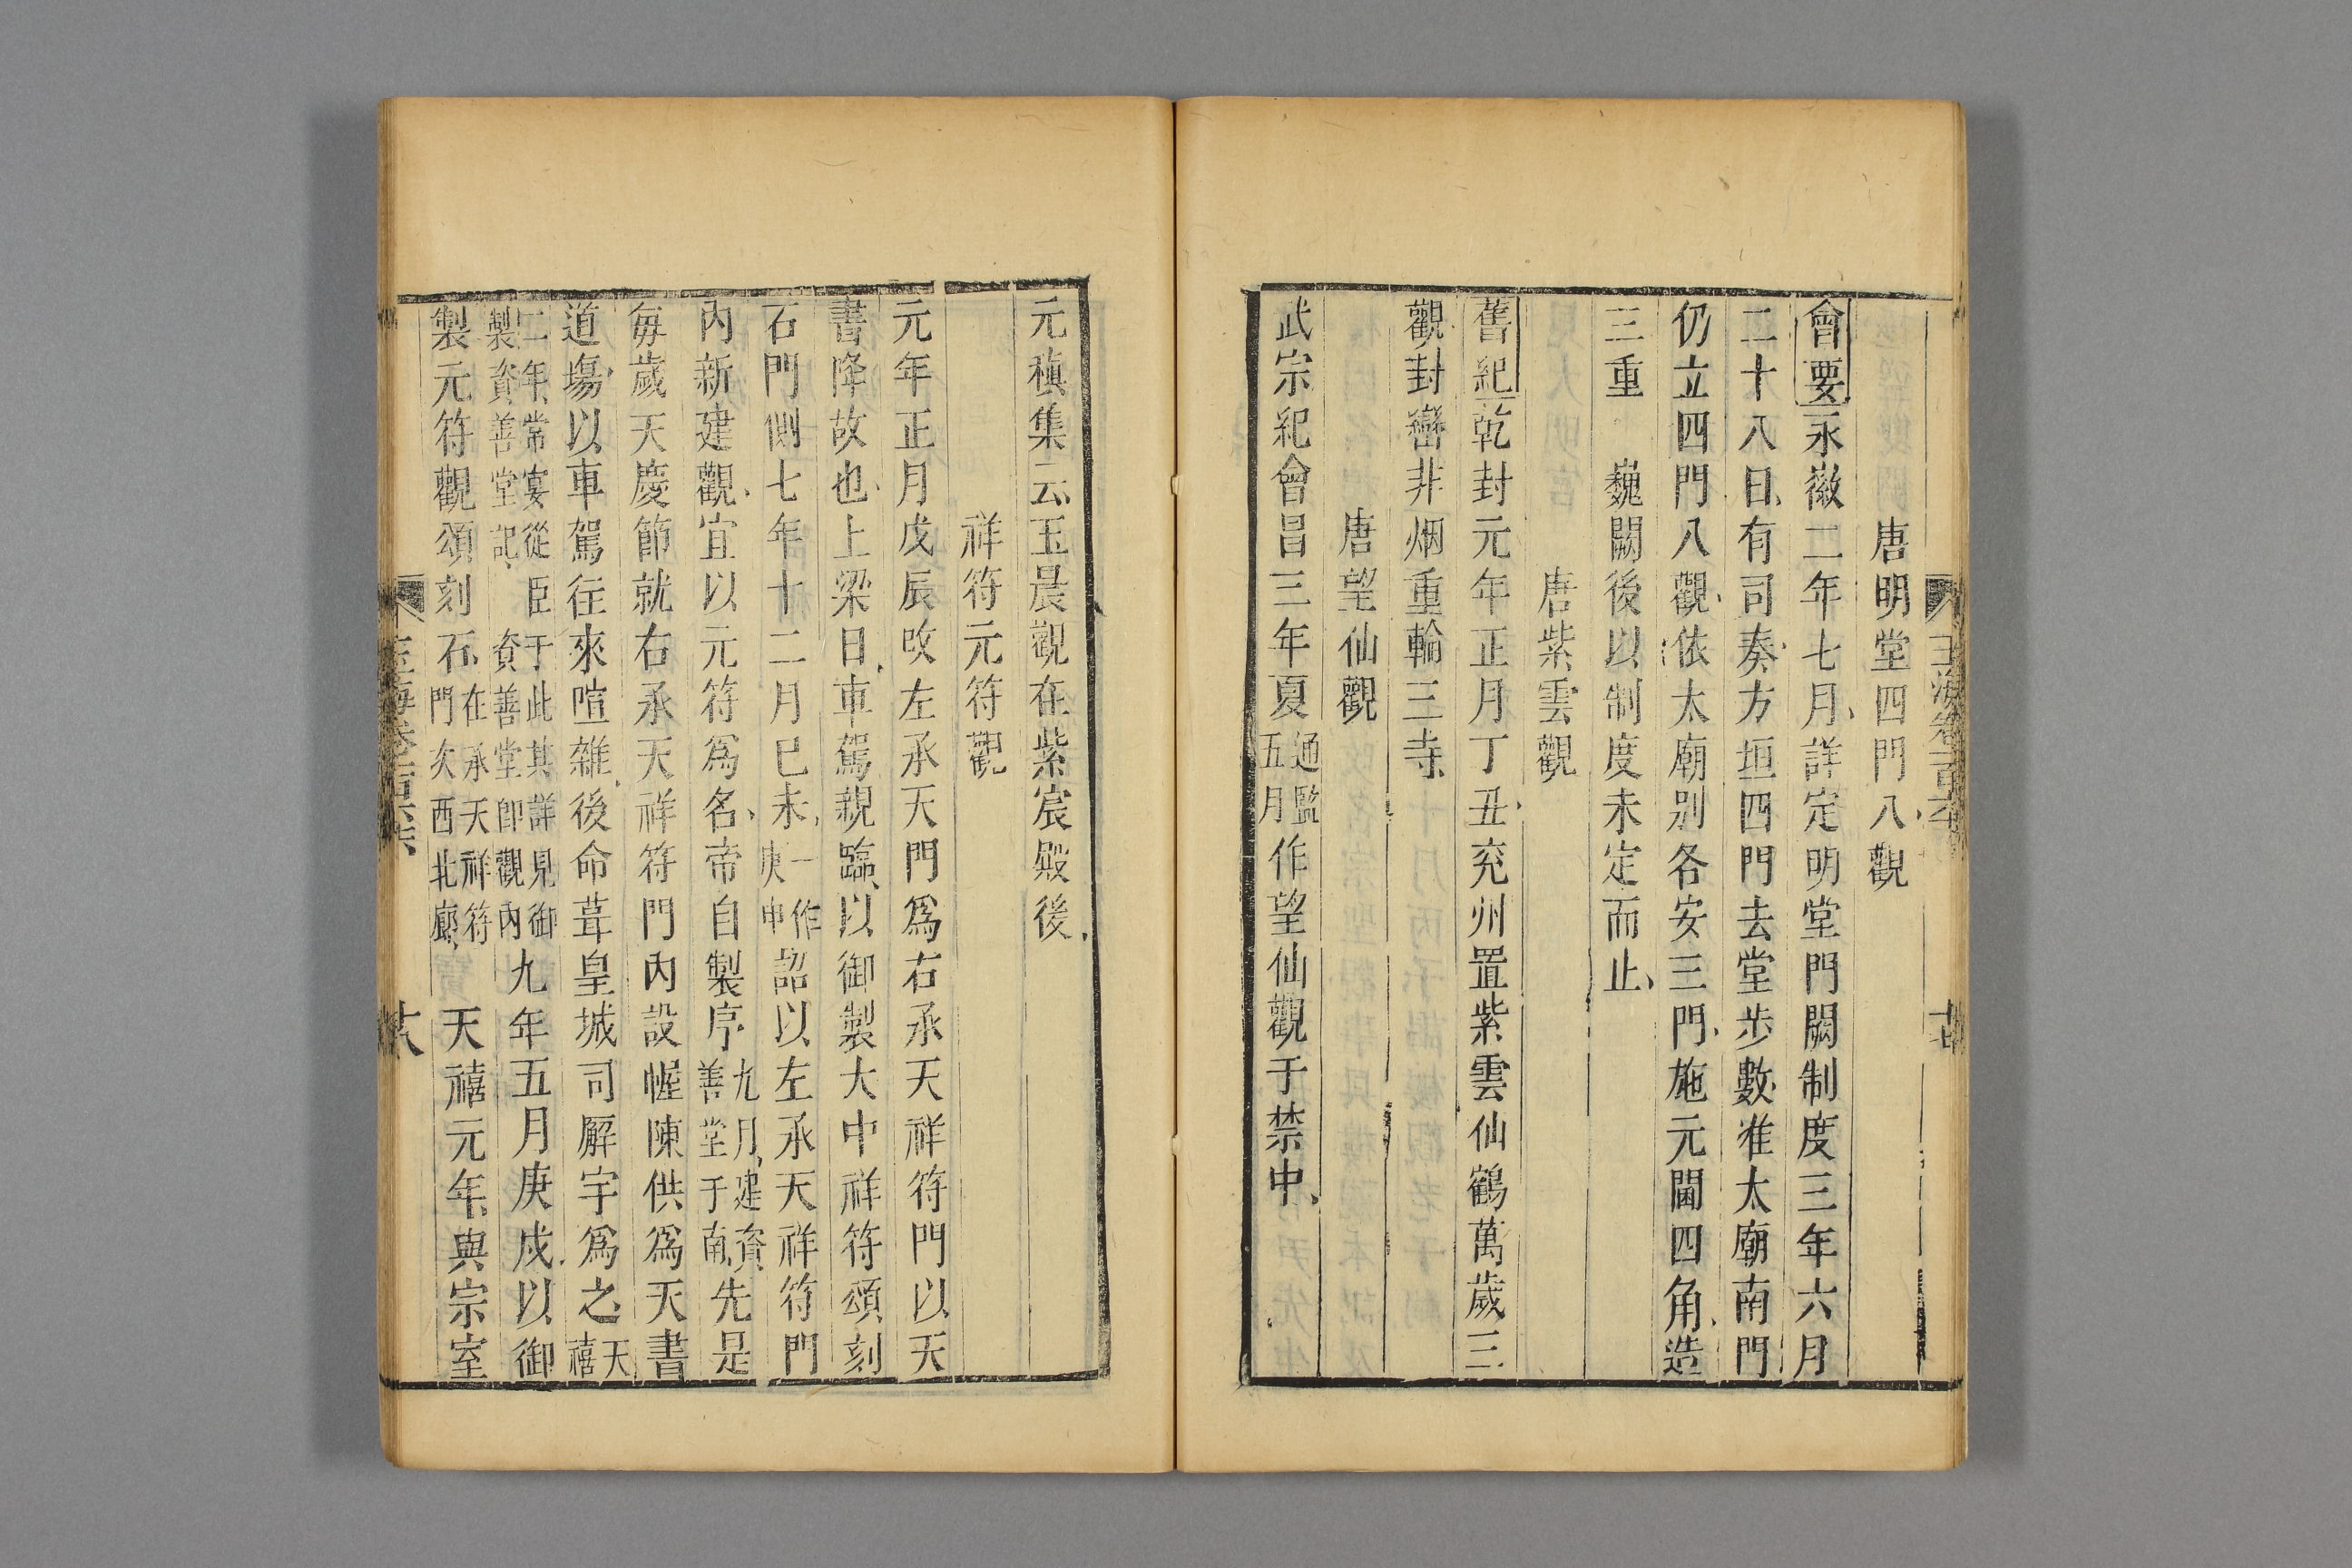 唐明堂四門八觀
會要永徽二年七月詳定明堂門闕制度三年六月
二十八日有司奏方垣四門去堂步數准太廟南門
仍立四門八觀依太廟别各安三門施元閫四角造
三重　巍闕後以制度未定而止
唐紫雲觀
舊紀乾封元年正月丁丑兖州置紫雲仙鶴萬歲三
觀封巒非烟重輪三寺
唐望仙觀
武宗紀會昌三年夏通監五月作望仙觀于禁中
元稹集云玉晨觀在紫宸殿後
祥符元符觀
元年正月戊辰改左承天門為右承天祥符門以天
書降故也上梁日車駕親臨以御製大中祥符頌刻
石門側七年十二月已未一作庚申詔以左承天祥符門
内新建觀宜以元符爲名帝自製序九月建資善堂于南先是
每歲天慶節就右承天祥符門内設幄陳供爲天書
道塲以車駕往來喧雜後命葺皇城司廨宇爲之天禧
二年常宴從臣于此其詳見御製資善堂記資善堂卽觀内九年五月庚戌以御
製元符觀頌刻石在承天祥符門次西北廊　天禧元年與宗室